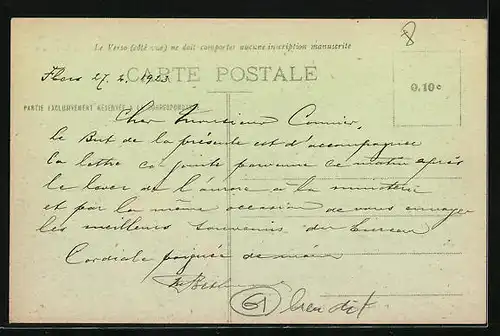 8
Le Verso (côté vue) ne doit comporter aucune inscription manuscrite
Flers 27. 2. 1923
CARTE POSTALE
0.10c
PARTIE EXCLUSIVEMENT RÉSERVÉE A LA CORRESPONDANCE
Cher Monsieur
le But de la présente est d'accompagner
la lettre ci jointe parvenue ce matin après
le lever de l'aurore à la
et par la même occasion de vous envoyer
les meilleurs souvenirs du bureau
Cordiale poignée de main
61